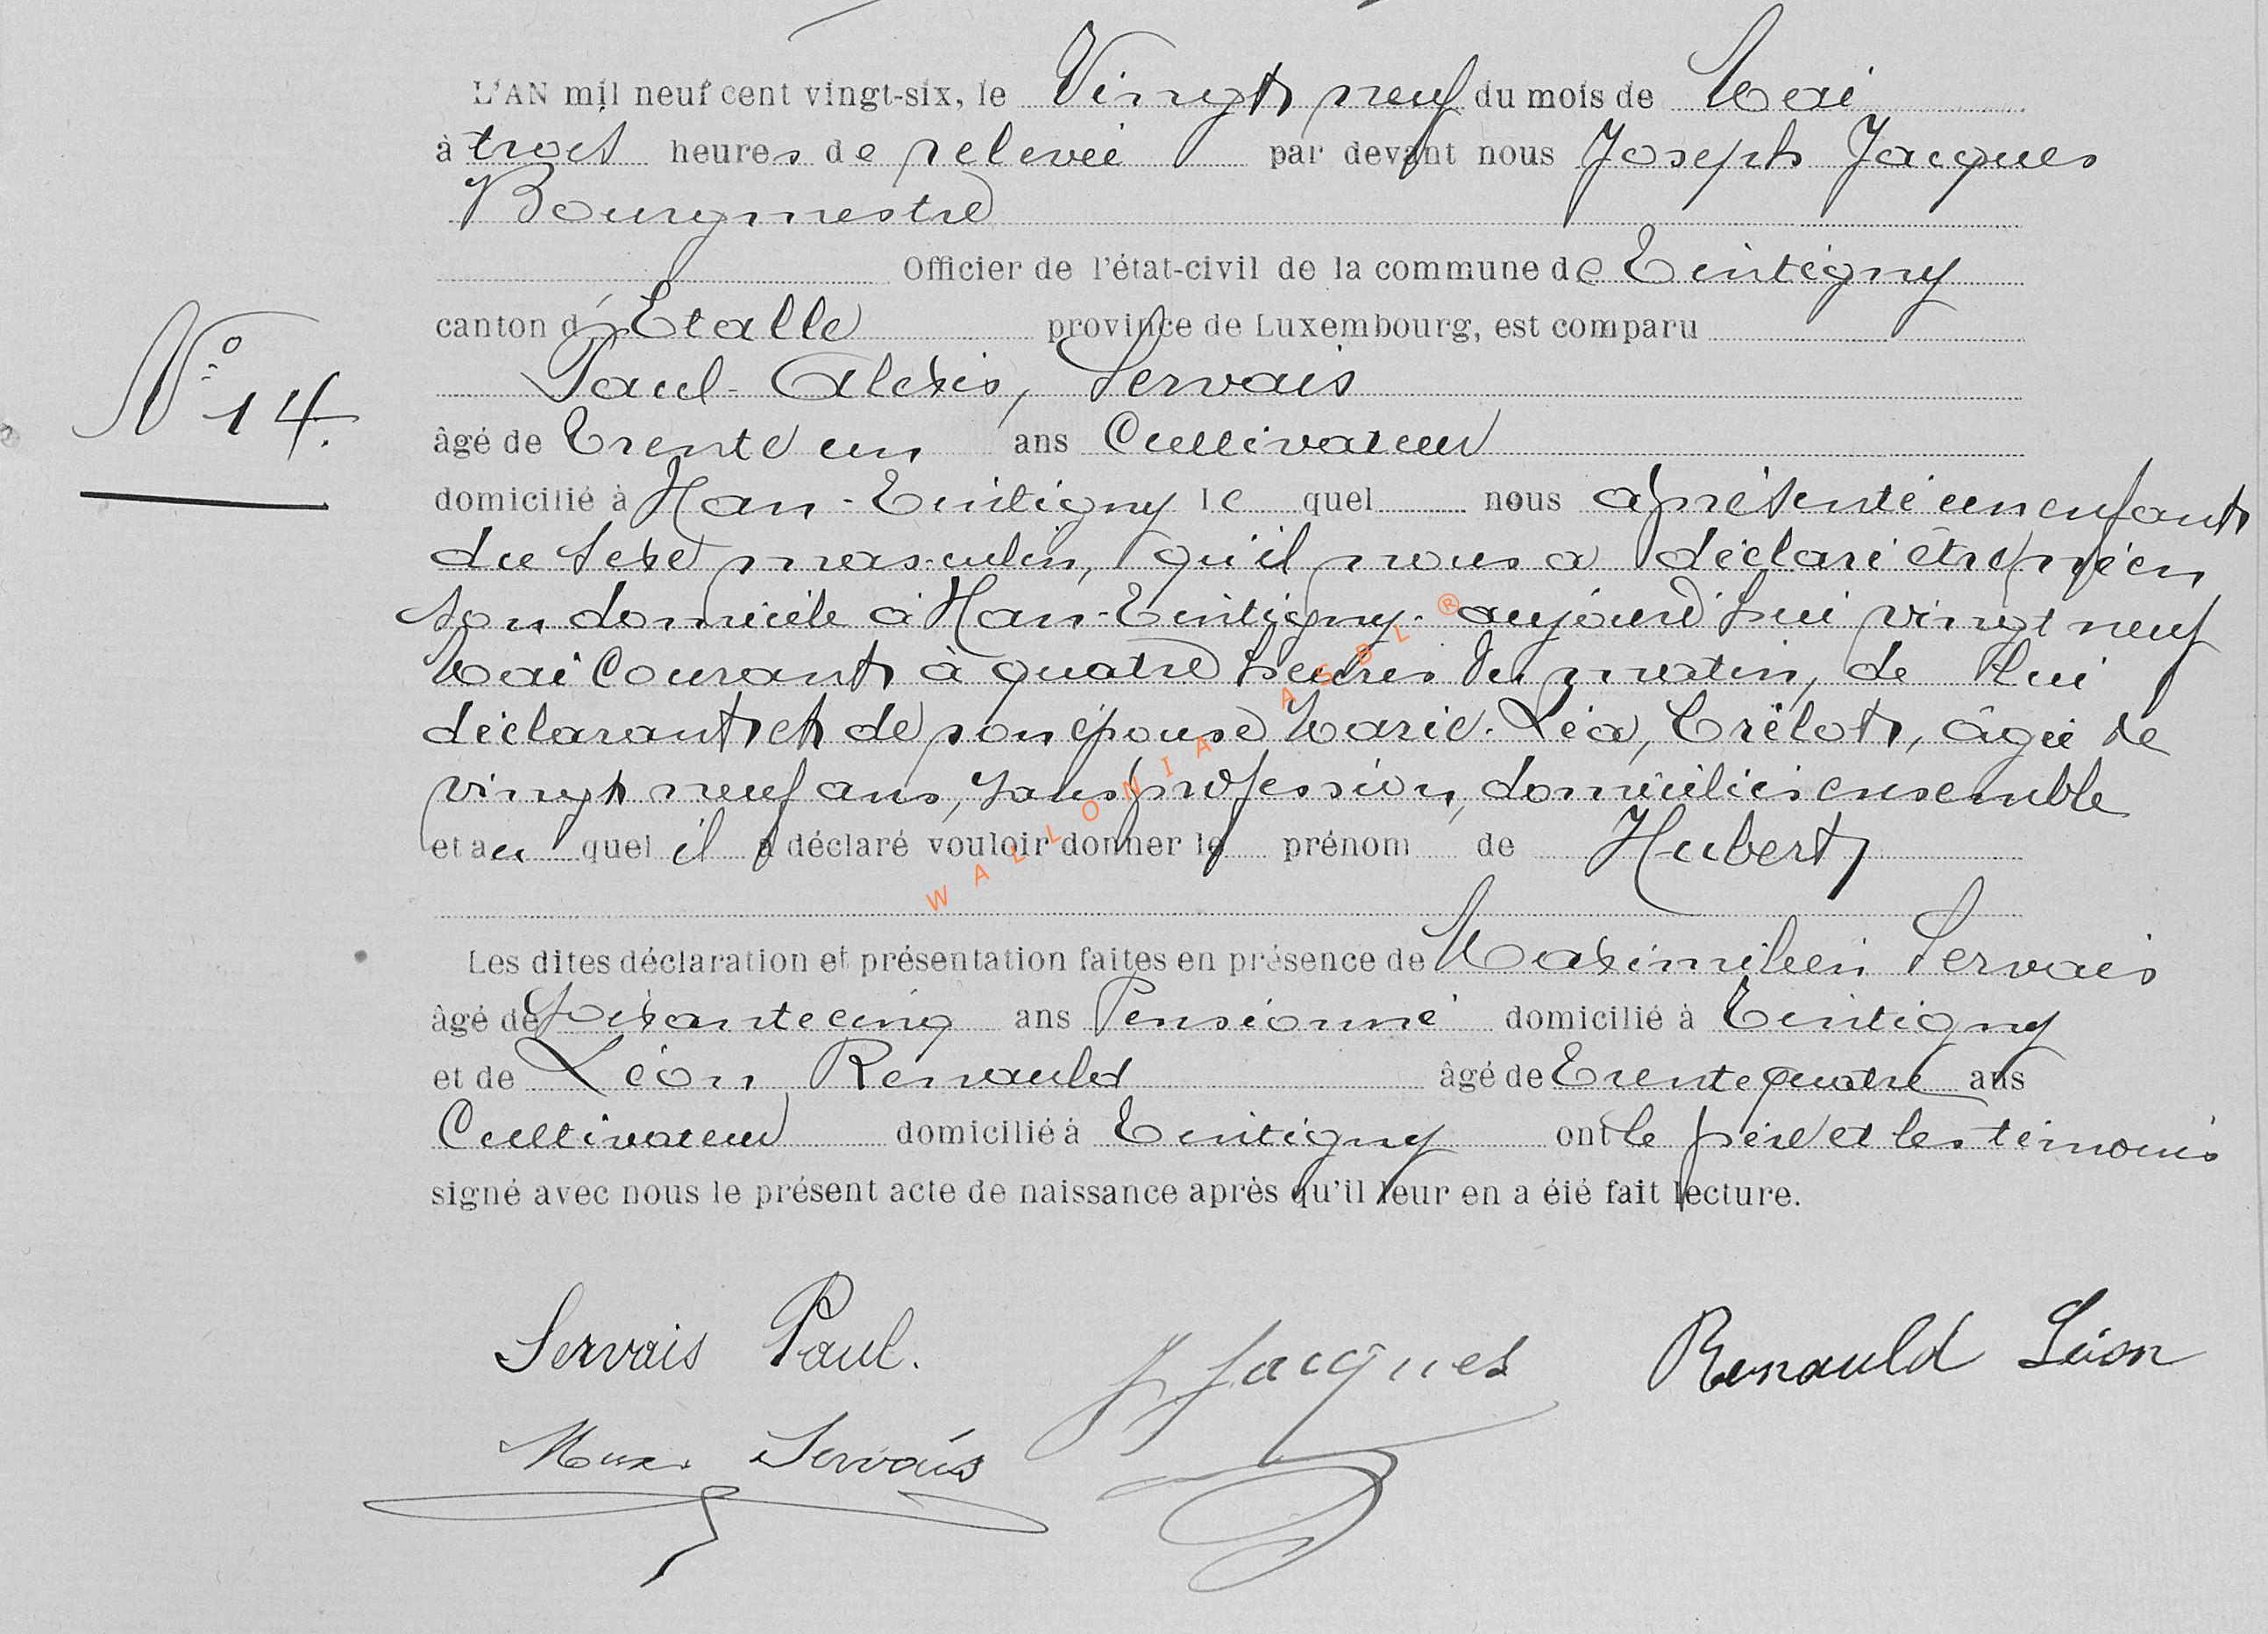 L'AN mil neuf cent vingt-six, le Vingt neuf du mois de Mai
à trois heures de relevée par devant nous Joseph Jacques
Bourgmestre
Officier de l'état-civil de la commune de Tintigny
canton d'Etalle province de Luxembourg, est comparu
Paul-Alexis, Servais
N° 14.
âgé de Trente un ans Cultivateur
domicilié à Han-Tintigny le quel nous a présenté un enfant
du sexe masculin, qu'il nous a déclaré être né en
son domicile à Han-Tintigny aujourd'hui vingt neuf
Mai Courant à quatre heures du matin, de lui
déclarant et de son épouse Marie-Léa, Trélot, âgée de
vingt neuf ans, sans profession, domiciliés ensemble
et au quel il a déclaré vouloir donner le prénom de Hubert
WALLONIA ASBL ®
Les dites déclaration et présentation faites en présence de Maximilien Servais
âgé de soixante cinq ans Pensionné domicilié à Tintigny
et de Léon Renauld âgé de Trente quatre ans
Cultivateur domicilié à Tintigny ont le père et les témoins
signé avec nous le présent acte de naissance après qu'il leur en a été fait lecture.
Servais Paul.
J Jacques
Renauld Léon
Max. Servais